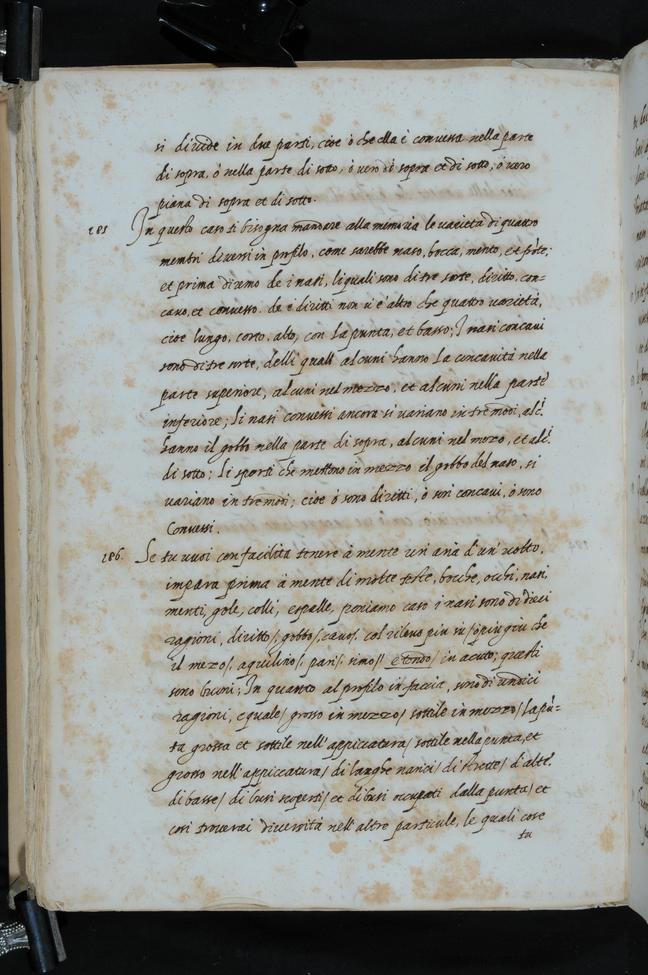 si divide in due parti, cioe ò che ella è convessa nella parte
di sopra, ò nella parte di sotto, ò vero di sopra et di sotto, ò vero
piana di sopra et di sotto.
185 In questo caso ti bisogna mandare alla memoria le varietà di quattro
membri diversi in profilo, come sarebbe naso, bocca, mento, et frōte;
et prima diremo de i nasi, li quali sono di tre sorte, diritto, con-
cavo, et convesso. de i diritti non vi è altro che quattro varietà,
cioe lungo, corto, alto, con la punta, et basso; I nasi concavi
sono di tre sorte, delli quali alcuni hanno la concavità nella
parte superiore, alcuni nel mezzo, et alcuni nella parte
inferiore; li nasi convessi ancora si variano in tre modi, alc.i
hanno il gobbo nella parte di sopra, alcuni nel mezo, et alc.i
di sotto; li sporti che mettono in mezzo il gobbo del naso, si
variano in tre modi; cioe ò sono diritti, ò son concavi, ò sono
Convessi.
186. Se tu vuoi con facilità tenere à mente un' aria d'un volto,
impara prima à mente di molte teste, bocche, occhi, nasi,
menti, gole, colli, e spalle, poniamo caso i nasi sono di dieci
ragioni, diritto/, gobbo/, cavo/, col rilevo piu su/ ò piu giu che
il mezo/, aquilino/, pari/, simo/ e tondo/ in acuto; questi
sono buoni; In quanto al profilo in faccia, sono di undici
ragioni, equale/ grosso in mezzo/ sottile in mezzo/ la pū=
ta grossa et sottile nell' appiccatura/ sottile nella punta, et
grosso nell' appiccatura/ di larghe narici/ di strette/ d'alte
di basse/ di busi scoperti/ et di busi occupati dalla punta/ et
cosi troverai diversità nell' altre particule, le quali cose
tu